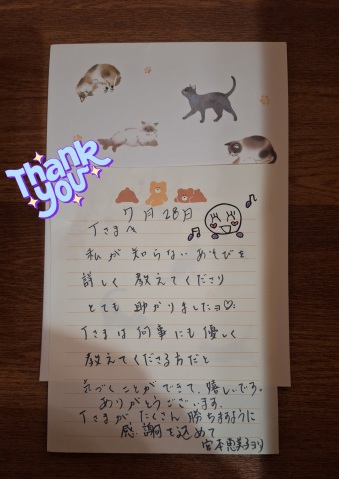 Thank
you
7月28日
Tさまへ
私が知らないあそびを
詳しく教えてくださり
とても助かりましたョ♡
Tさまは何事にも優しく
教えてくださる方だと
気づくことができて、嬉しいです。
ありがとうございます。
Tさまがたくさん勝ちますように
感謝を込めて
宮本恵美子ヨリ